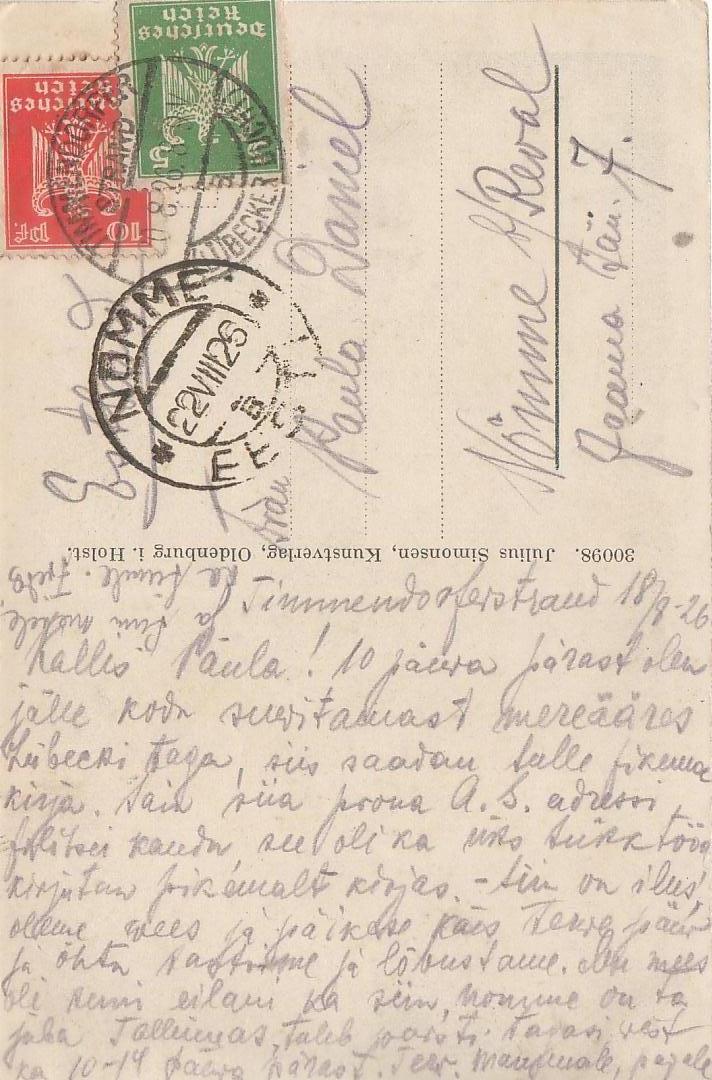 Deutsches
Reich
5
Deutsches
Reich
10 Pf.
TIMMENDORFER
STRAND
LÜBECKER BUCHT
NÕMME
22 VIII 26
EESTI
Estland
Frau
Paula Daniel
Nõmme b/Reval
Jaama tän. 7.
30098. Julius Simonsen, Kunstverlag, Oldenburg i. Holst.
Timmendorferstrand 18/8-26
Kallis Paula! 10 päeva pärast olen
jälle kodu suvitamast mereääres
Lübecki taga, siis saadan sulle pikema
kirja. Sain siia proua A. S. adressi
politsei kaudu, see oli ka üks tükk tööd
kirjutan pikemalt kirjas. - Siin on ilus,
oleme vees ja päikese käes terve päev
ja õhtu tantsime ja lõbustame. Mu mees
oli kuni eilani ka siin, homme on ta
juba Tallinnas, tuleb varsti tagasi vist
ka 10-14 päeva pärast. Terv. mammale, papale
ja